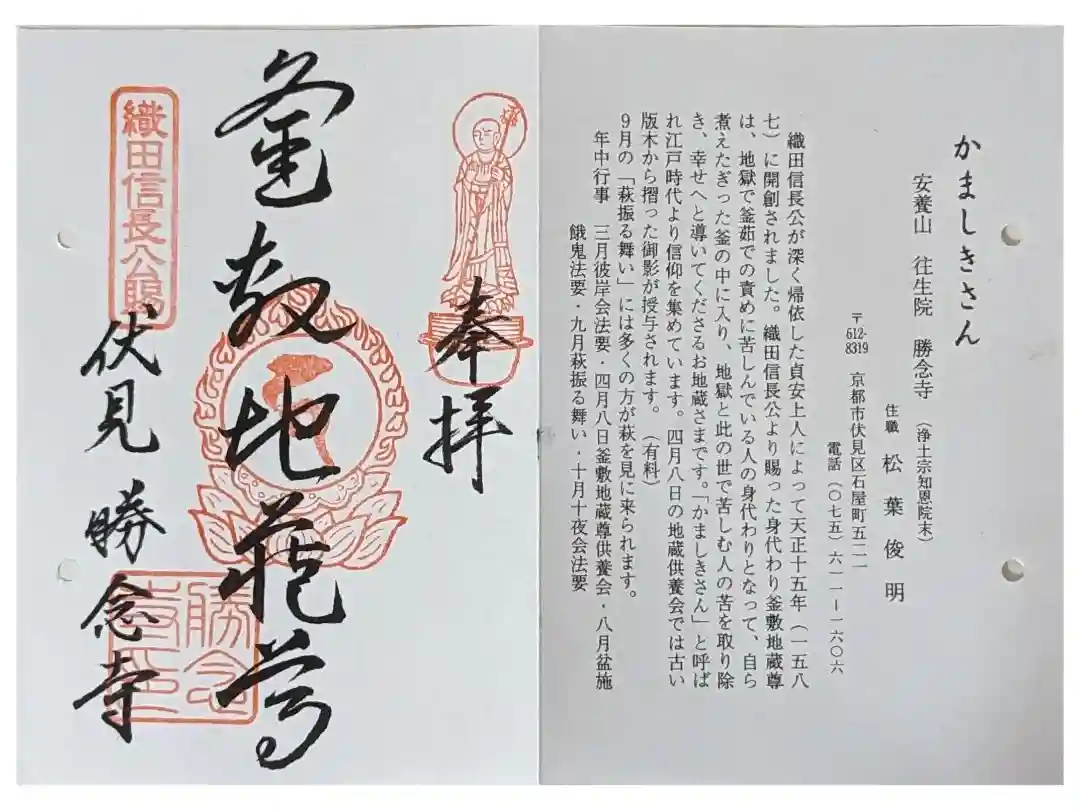 かましきさん
安養山 往生院 勝念寺（浄土宗知恩院末）
住職 松葉俊明
〒612-8319 京都市伏見区石屋町五二一
電話（〇七五）六一一－一六〇六
織田信長公が深く帰依した貞安上人によって天正十五年（一五八
七）に開創されました。織田信長公より賜った身代わり釜敷地蔵尊
は、地獄で釜茹での責めに苦しんでいる人の身代わりとなって、自ら
煮えたぎった釜の中に入り、地獄と此の世で苦しむ人の苦を取り除
き、幸せへと導いてくださるお地蔵さまです。「かましきさん」と呼ば
れ江戸時代より信仰を集めています。四月八日の地蔵供養会では古い
版木から摺った御影が授与されます。（有料）
9月の「萩振る舞い」には多くの方が萩を見に来られます。
年中行事 三月彼岸会法要・四月八日釜敷地蔵尊供養会・八月盆施
餓鬼法要・九月萩振る舞い・十月十夜会法要
奉拝
釜敷地蔵尊
織田信長公賜
伏見 勝念寺
勝念寺印